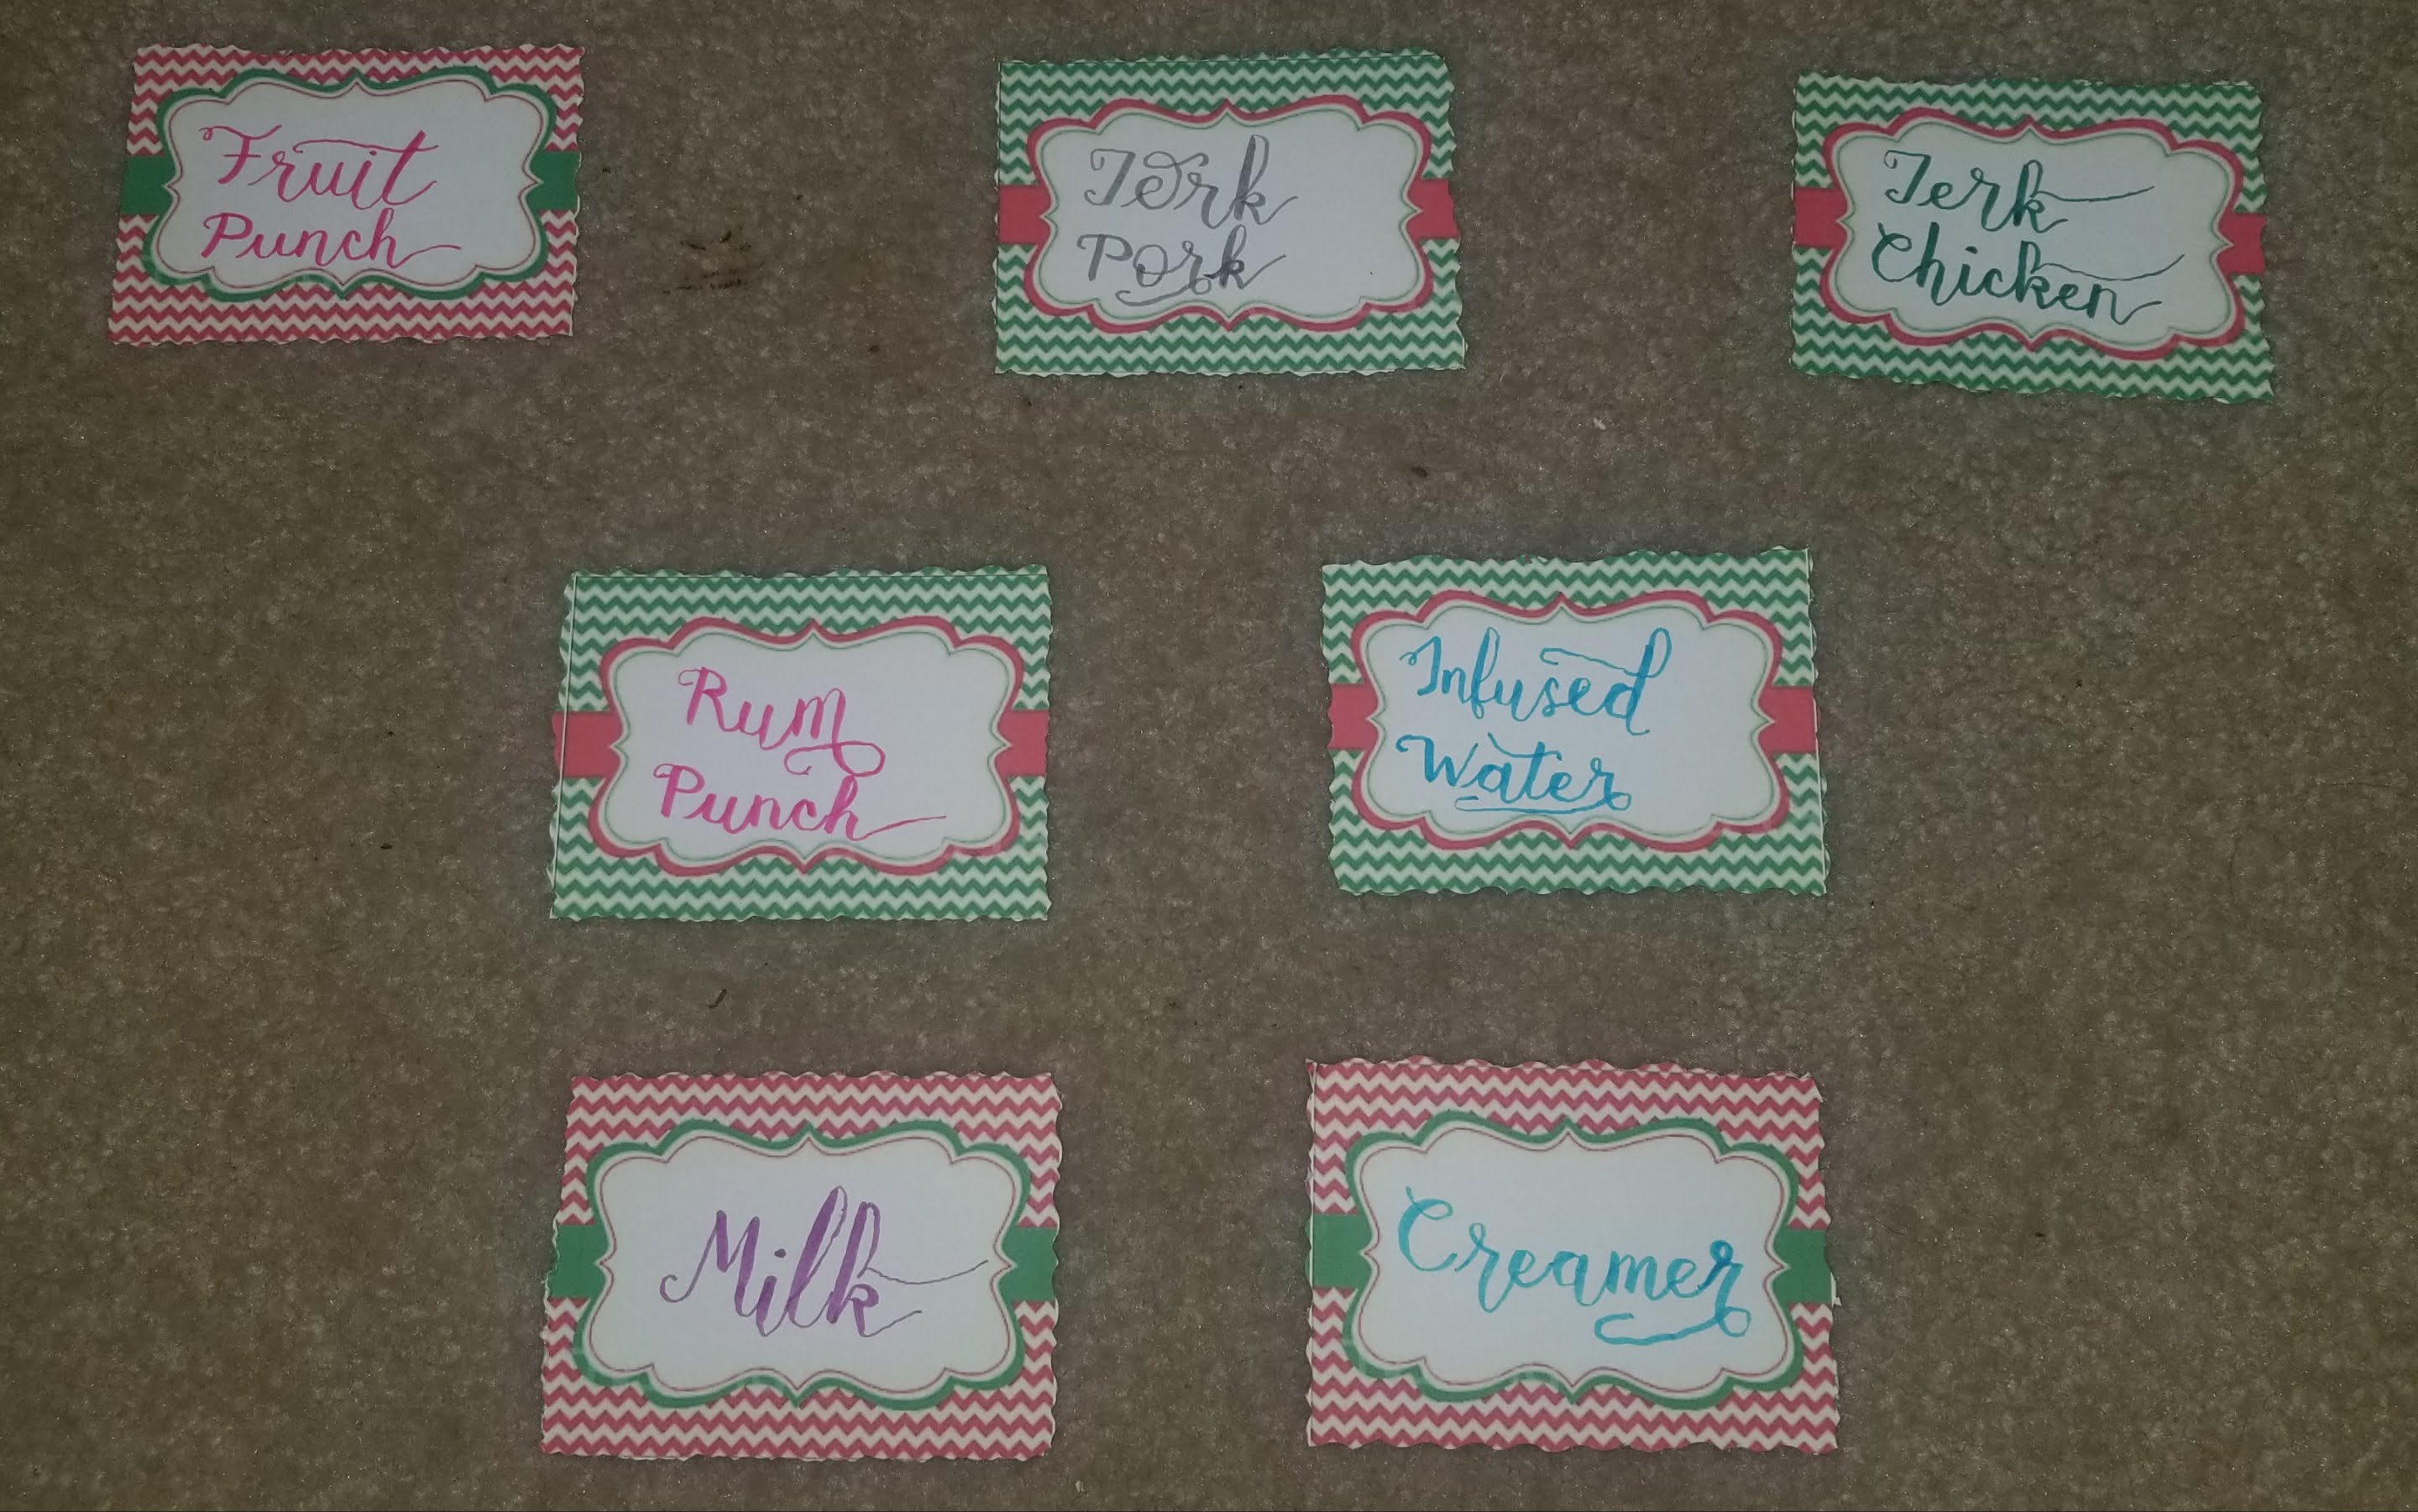 Fruit
Punch
Jerk
Pork
Jerk
Chicken
Rum
Punch
Infused
Water
Milk
Creamer